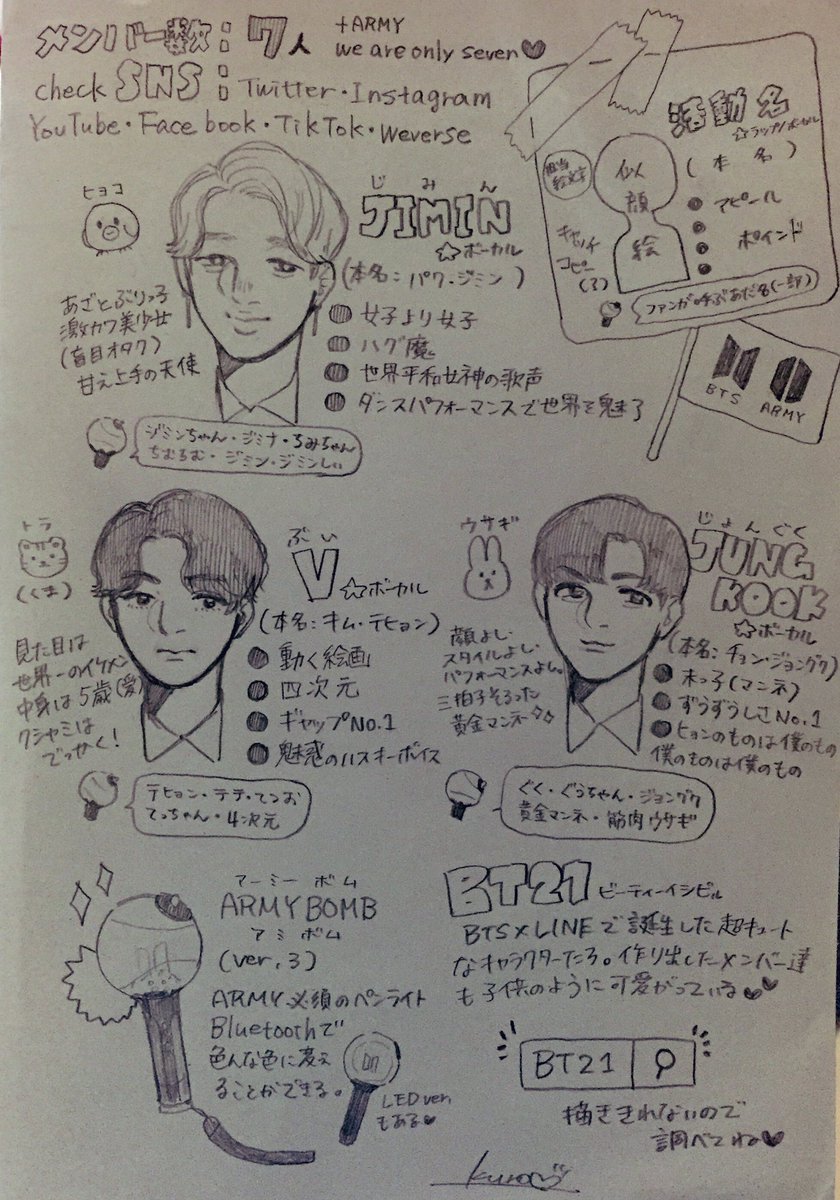 メンバー数:7人
+ARMY
we are only seven♥
check SNS:Twitter・Instagram
YouTube・Facebook・TikTok・Weverse
活動名
☆ラップ/ボーカル
(本名)
担当
絵文字
似
顔
絵
アピール
ポインド
キャッチ
コピー
(?)
ファンが呼ぶあだ名(一部)
BTS
ARMY
ヒヨコ
じみん
JIMIN
☆ボーカル
(本名:パク・ジミン)
あざとぶりっ子
激カワ美少女
(盲目オタク)
甘え上手の天使
●女子より女子
●ハグ魔
●世界平和女神の歌声
●ダンスパフォーマンスで世界を魅了
ジミンちゃん・ジミナ・ちみちゃん
ちむちむ・ジミン・ジミンしぃ
トラ
(くま)
ぶい
V
☆ボーカル
(本名:キム・テヒョン)
見た目は
世界一のイケメン
中身は5歳(愛)
クシャミは
でっけぇ!
●動く絵画
●四次元
●ギャップNo.1
●魅惑のハスキーボイス
テヒョン・テテ・てつお
てっちゃん・4次元
ウサギ
じょんぐく
JUNG
KOOK
☆ボーカル
(本名:チョン・ジョングク)
顔よし
スタイルよし
パフォーマンスよし。
三拍子そろった
黄金マンネ
●末っ子(マンネ)
●ずうずうしさNo.1
●ヒョンのものは僕のもの
僕のものは僕のもの
ぐく・ぐぅちゃん・ジョングク
黄金マンネ・筋肉ウサギ
アーミー ボム
ARMY BOMB
アミ ボム
(ver.3)
ARMY必須のペンライト
Bluetoothで
色んな色に変え
ることができる。
LED ver
もある♥
BT21 ビーティーイシビル
BTS×LINEで誕生した超キュート
なキャラクターたち。作り出したメンバー達
も子供のように可愛がっている♥♥
BT21
描ききれないので
調べてね♥
kuro